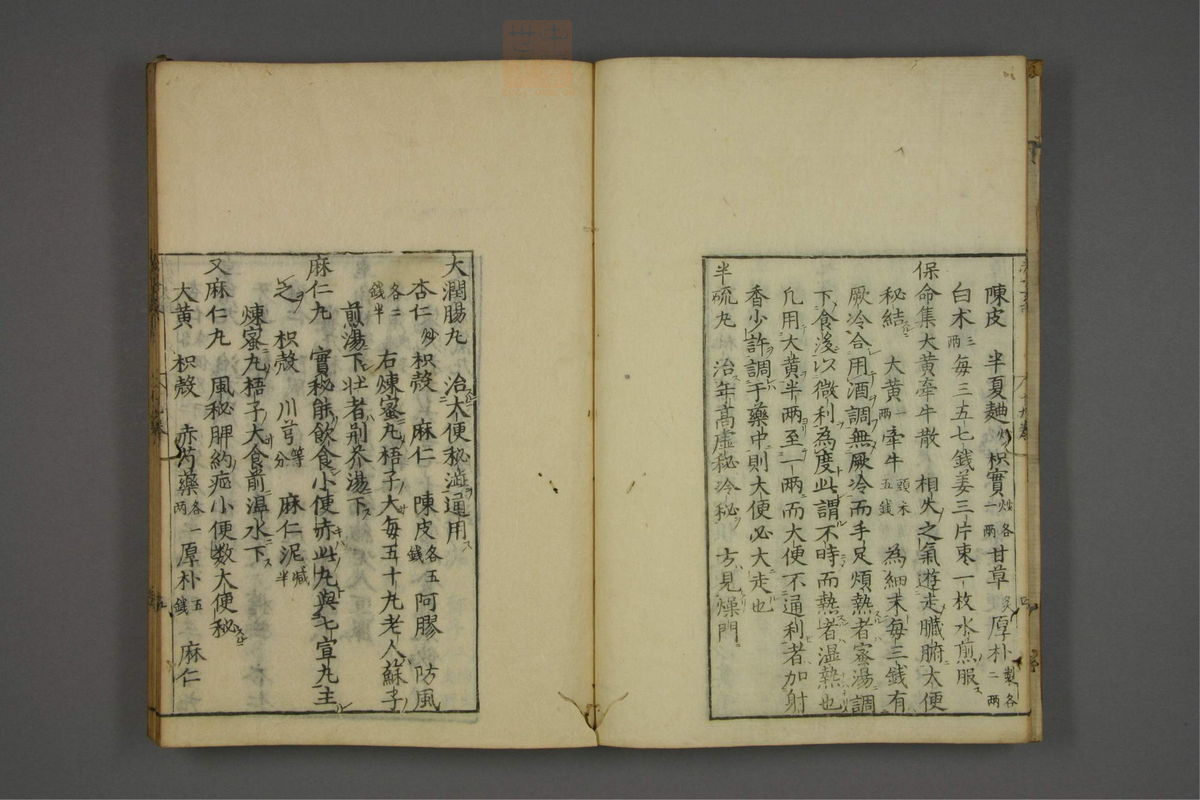 陳皮　半夏麯炒枳實炒各一兩甘草炙厚朴製各二兩
白朮三兩每三五七錢姜三片棗一枚水煎服
保命集大黄牽牛散　相火之氣遊走臟腑大便
秘結　大黄一兩牽牛頭末五錢　為細末每三錢有
厥冷合用酒調無厥冷而手足煩熱者蜜湯調
下食後以微利為度此謂不時而熱者湿熱也
凢用大黄半两至一两而大便不通利者加射
香少許調于藥中則大便必大走也
半硫丸　治年高虚秘冷秘　方見燥門
大潤腸丸　治大便秘澁通用
杏仁炒枳殻　麻仁　陳皮各五錢阿膠　防風
各二錢半　右煉蜜丸梧子大每五十丸老人蘇子
煎湯下壮者荆芥湯下
麻仁丸　實秘能飲食小便赤此丸與七宣丸主
之　枳殻　川芎等分　麻仁泥減半
煉蜜丸梧子大食前温水下
又麻仁丸　風秘脾約症小便数大便秘
大黄　枳殻　赤芍藥各一两　厚朴五錢　麻仁